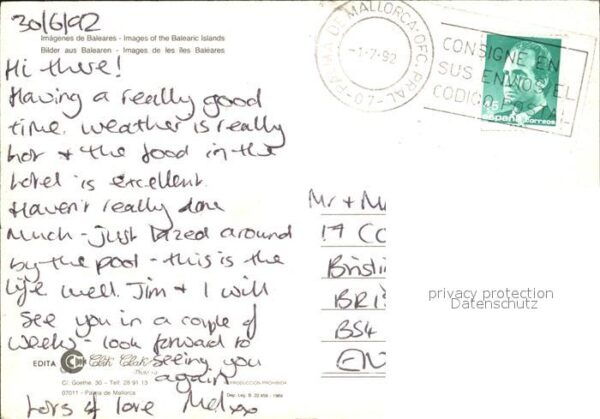 30/6/92
Imágenes de Baleares - Images of the Balearic Islands
Bilder aus Balearen - Images de les îles Baléares
Hi there!
Having a really good
time. Weather is really
hot + the food in the
hotel is excellent.
Haven't really done
much - just lazed around
by the pool - this is the
life well. Jim + I will
see you in a couple of
weeks - look forward to
seeing you
again
Lots of love Mel xxo
EDITA
C/. Goethe, 30 - Telf. 28 91 13
07011 - Palma de Mallorca
REPRODUCCION PROHIBIDA
Dep. Leg. B.
PALMA DE MALLORCA-OFC. PRAL.
-1-7-92
-07-
CONSIGNE EN
SUS ENVIOS EL
CODIGO
España
correos
Mr + M
17 CO
BRIS
BS4
EN
privacy protection
Datenschutz